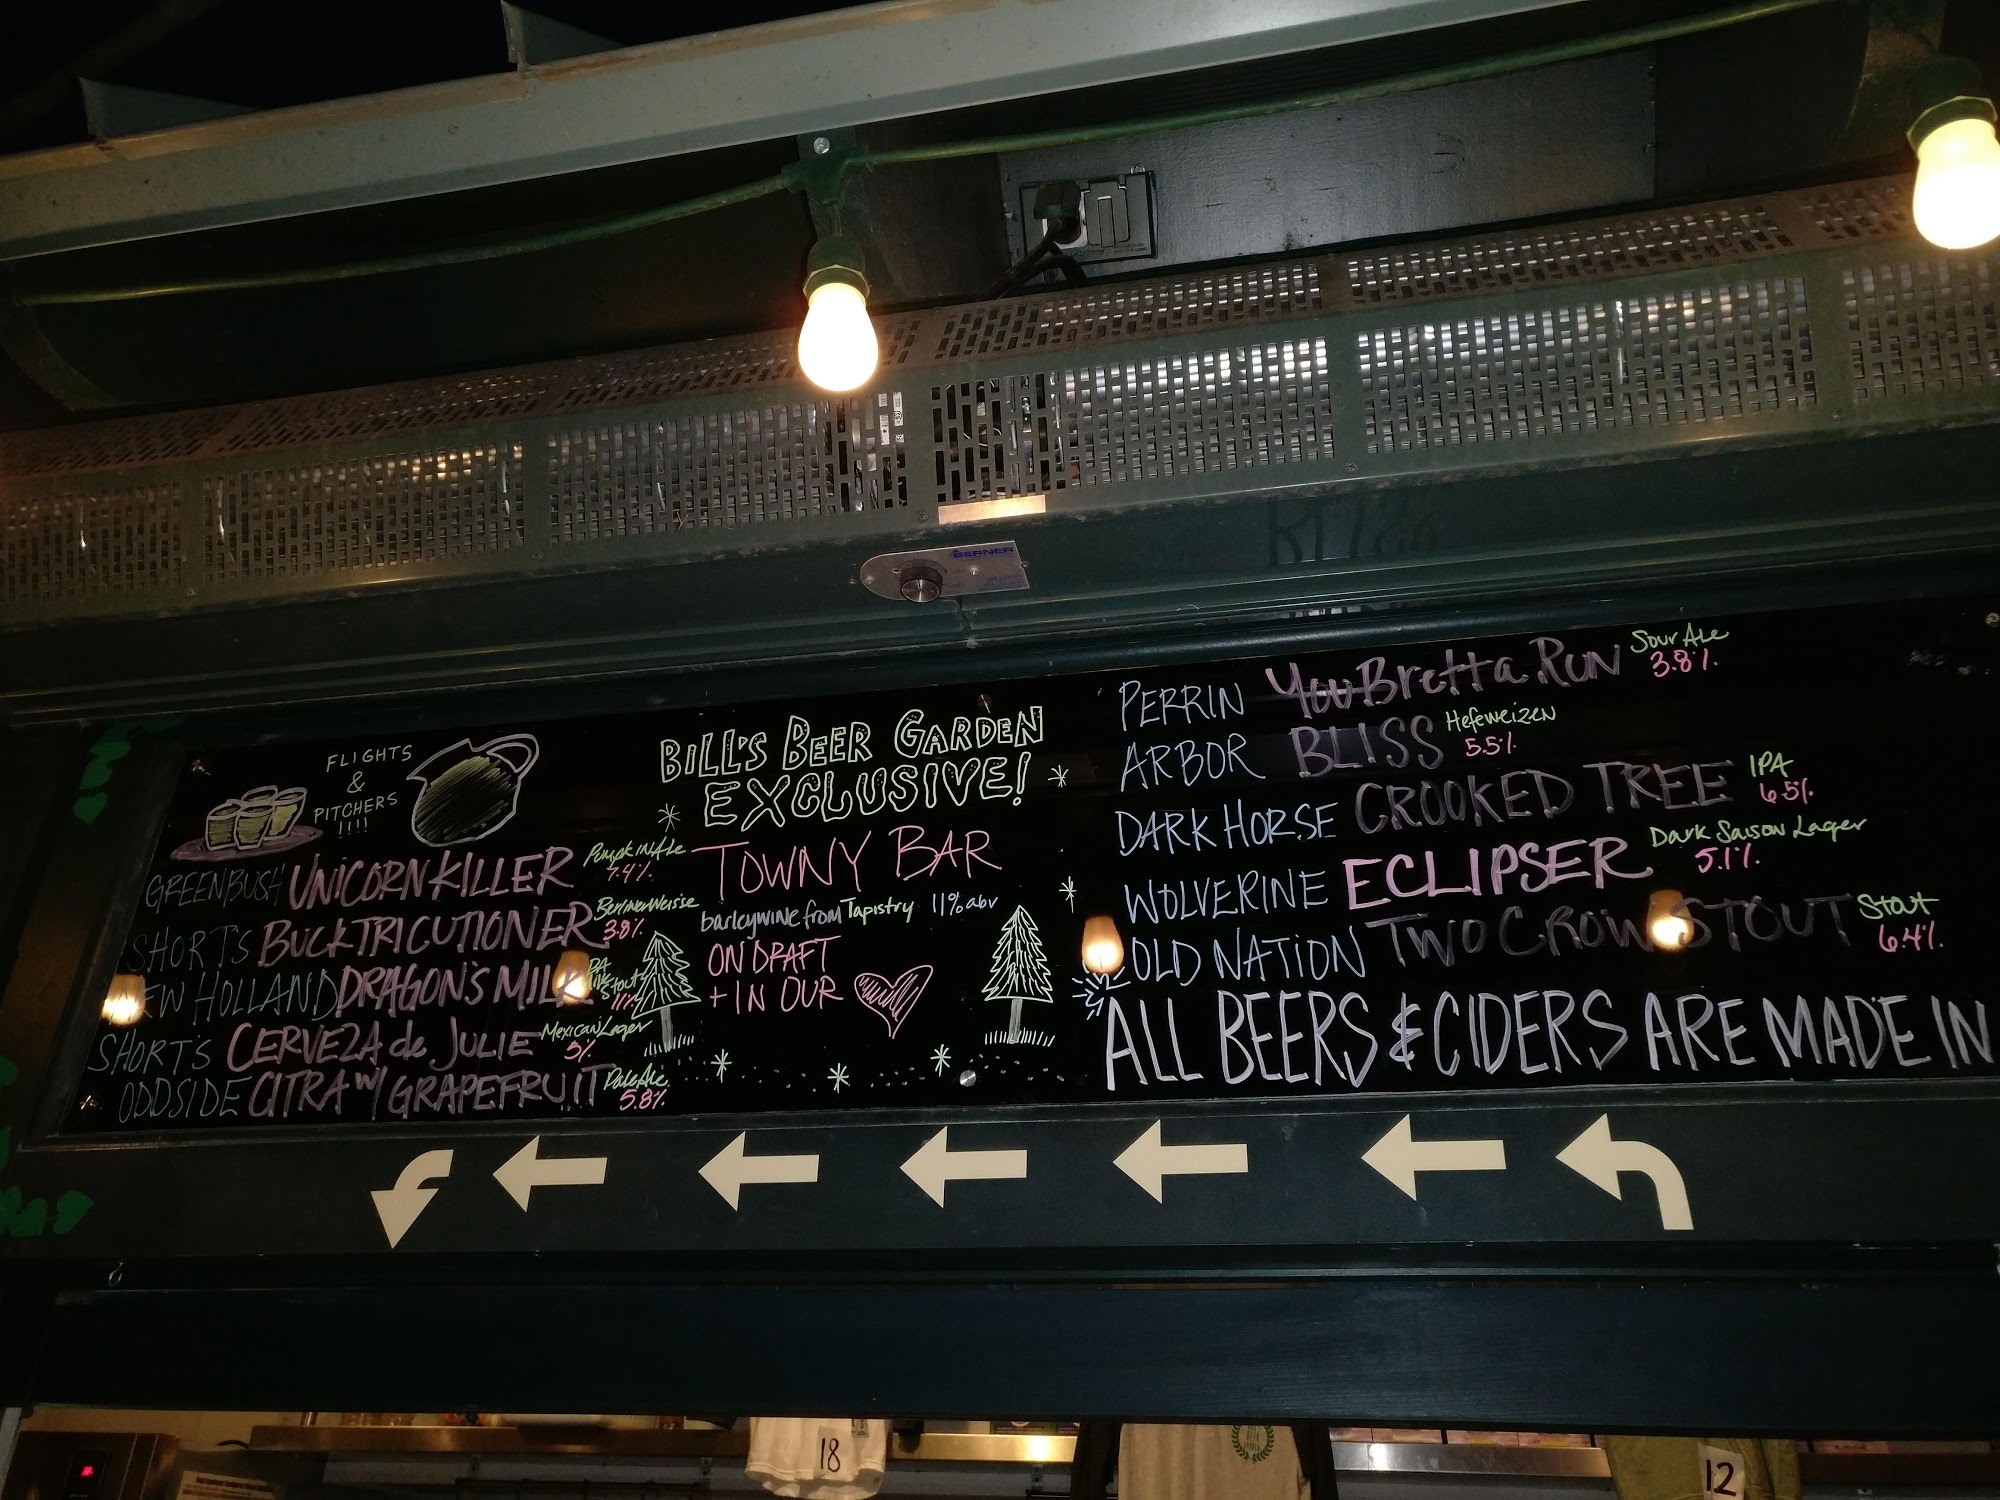 BERNER
FLIGHTS
&
PITCHERS
!!!!
GREENBUSH UNICORN KILLER Pumpkin Ale 7.4%
SHORT'S BUCKTRICUTIONER Berliner Weisse 3.8%
NEW HOLLAND DRAGON'S MILK Stout 11%
SHORT'S CERVEZA de JULIE Mexican Lager 5%
ODDSIDE CITRA w/ GRAPEFRUIT Pale Ale 5.8%
BILL'S BEER GARDEN
EXCLUSIVE!
TOWNY BAR
barleywine from Tapistry 11% abv
ON DRAFT
+ IN OUR
PERRIN You Bretta Run Sour Ale 3.8%
ARBOR BLISS Hefeweizen 5.5%
DARK HORSE CROOKED TREE IPA 6.5%
WOLVERINE ECLIPSER Dark Saison Lager 5.1%
OLD NATION TWO CROW STOUT Stout 6.4%
ALL BEERS & CIDERS ARE MADE IN
18
BEER
GARDEN
12